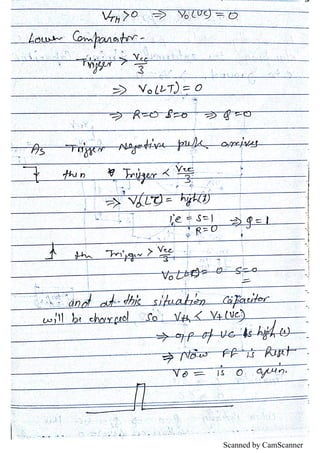 V_TH > 0 ⇒ V₀(UC) = 0
Lower Comparator -
Trigger > Vcc/3
⇒ V₀(LT) = 0
⇒ R=0 S=0 ⇒ Q=0
As Trigger Negative pulse arrives
then Trigger < Vcc/3
⇒ V₀(LC) = high(1)
i.e = S=1 ⇒ Q=1
R=0
then Trigger > Vcc/3
V₀ = 0 S=0
and at this situation Capacitor
will be charged so Vth < V+(UC)
⇒ O/P of UC is high (1)
⇒ Now FF is Reset
V₀ = is 0 again.
Scanned by CamScanner